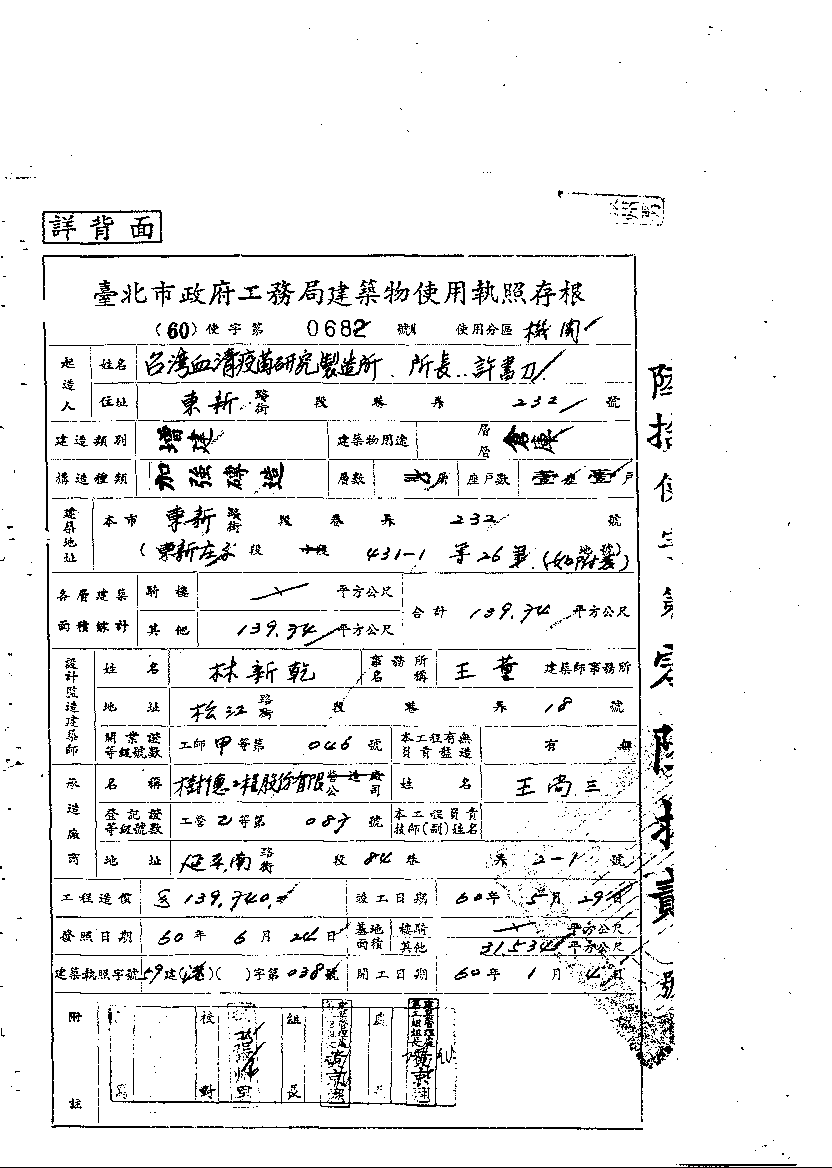 詳背面
臺北市政府工務局建築物使用執照存根
(60)使字第 0682 號 使用分區 機関
起造人 姓名 台湾血清疫苗研究製造所 所長
住址 東新 路街 段 巷 弄 232 號
建造類別 增建 建築物用途 層層 倉庫
構造種類 加強磚造 層數 層 座戶數 壹座壹戶
建築地址 本市 東新 路街 段 巷 弄 232 號
(東新庄子 段 小段 431-1 等26筆
各層建築面積錄計 騎樓 平方公尺 合計 139.74 平方公尺
其他 139.74 平方公尺
設計監造建築師 姓名 林新乾 事務所名稱 王董 建築師事務所
地址 松江 路街 段 巷 弄 18 號
開業證等級號數 工師甲等第 046 號 本工程有無員責監造 有 無
承造廠商 名稱 樹德工程股份有限 營造廠公司 姓名 王尚三
登記證等級號數 工營乙等第 號 本工程員責技師(副)姓名
地址 延平南 路街 段 84 巷 弄 2-1 號
工程造價 139,740 竣工日期 60年 5月 29日
發照日期 60年 6月 24日 基地面積 樓騎 平方公尺
其他 31534 平方公尺
建築執照字號 59建( )( )字第038號 開工日期 60年 1月 4日
附註 校對 組長
陸拾使字第零陸捌貳號